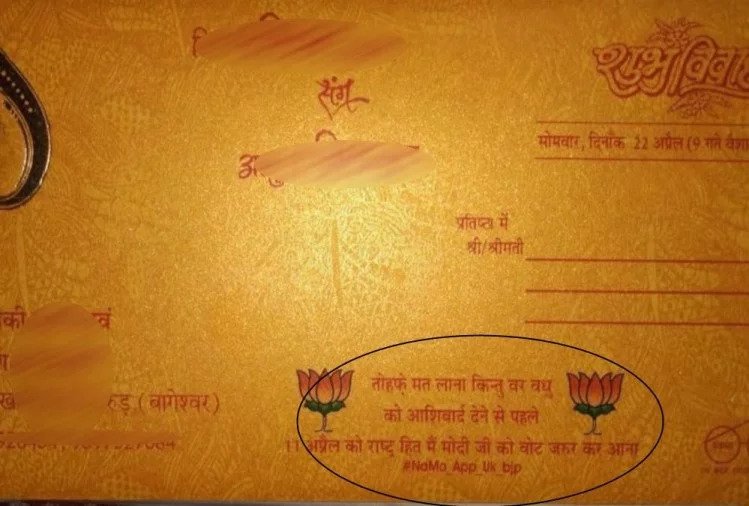 संग
शुभ विवा
सोमवार, दिनाँक 22 अप्रैल (9 गते वैशा
प्रतिष्ठा में
श्री/श्रीमती
की वं
हड़ (बागेश्वर)
तोहफे मत लाना किन्तु वर वधु
को आशिबार्द देने से पहले
11 अप्रैल को राष्ट्र हित मैं मोदी जी को वोट जरुर कर आना
#NaMo_App_Uk_bjp